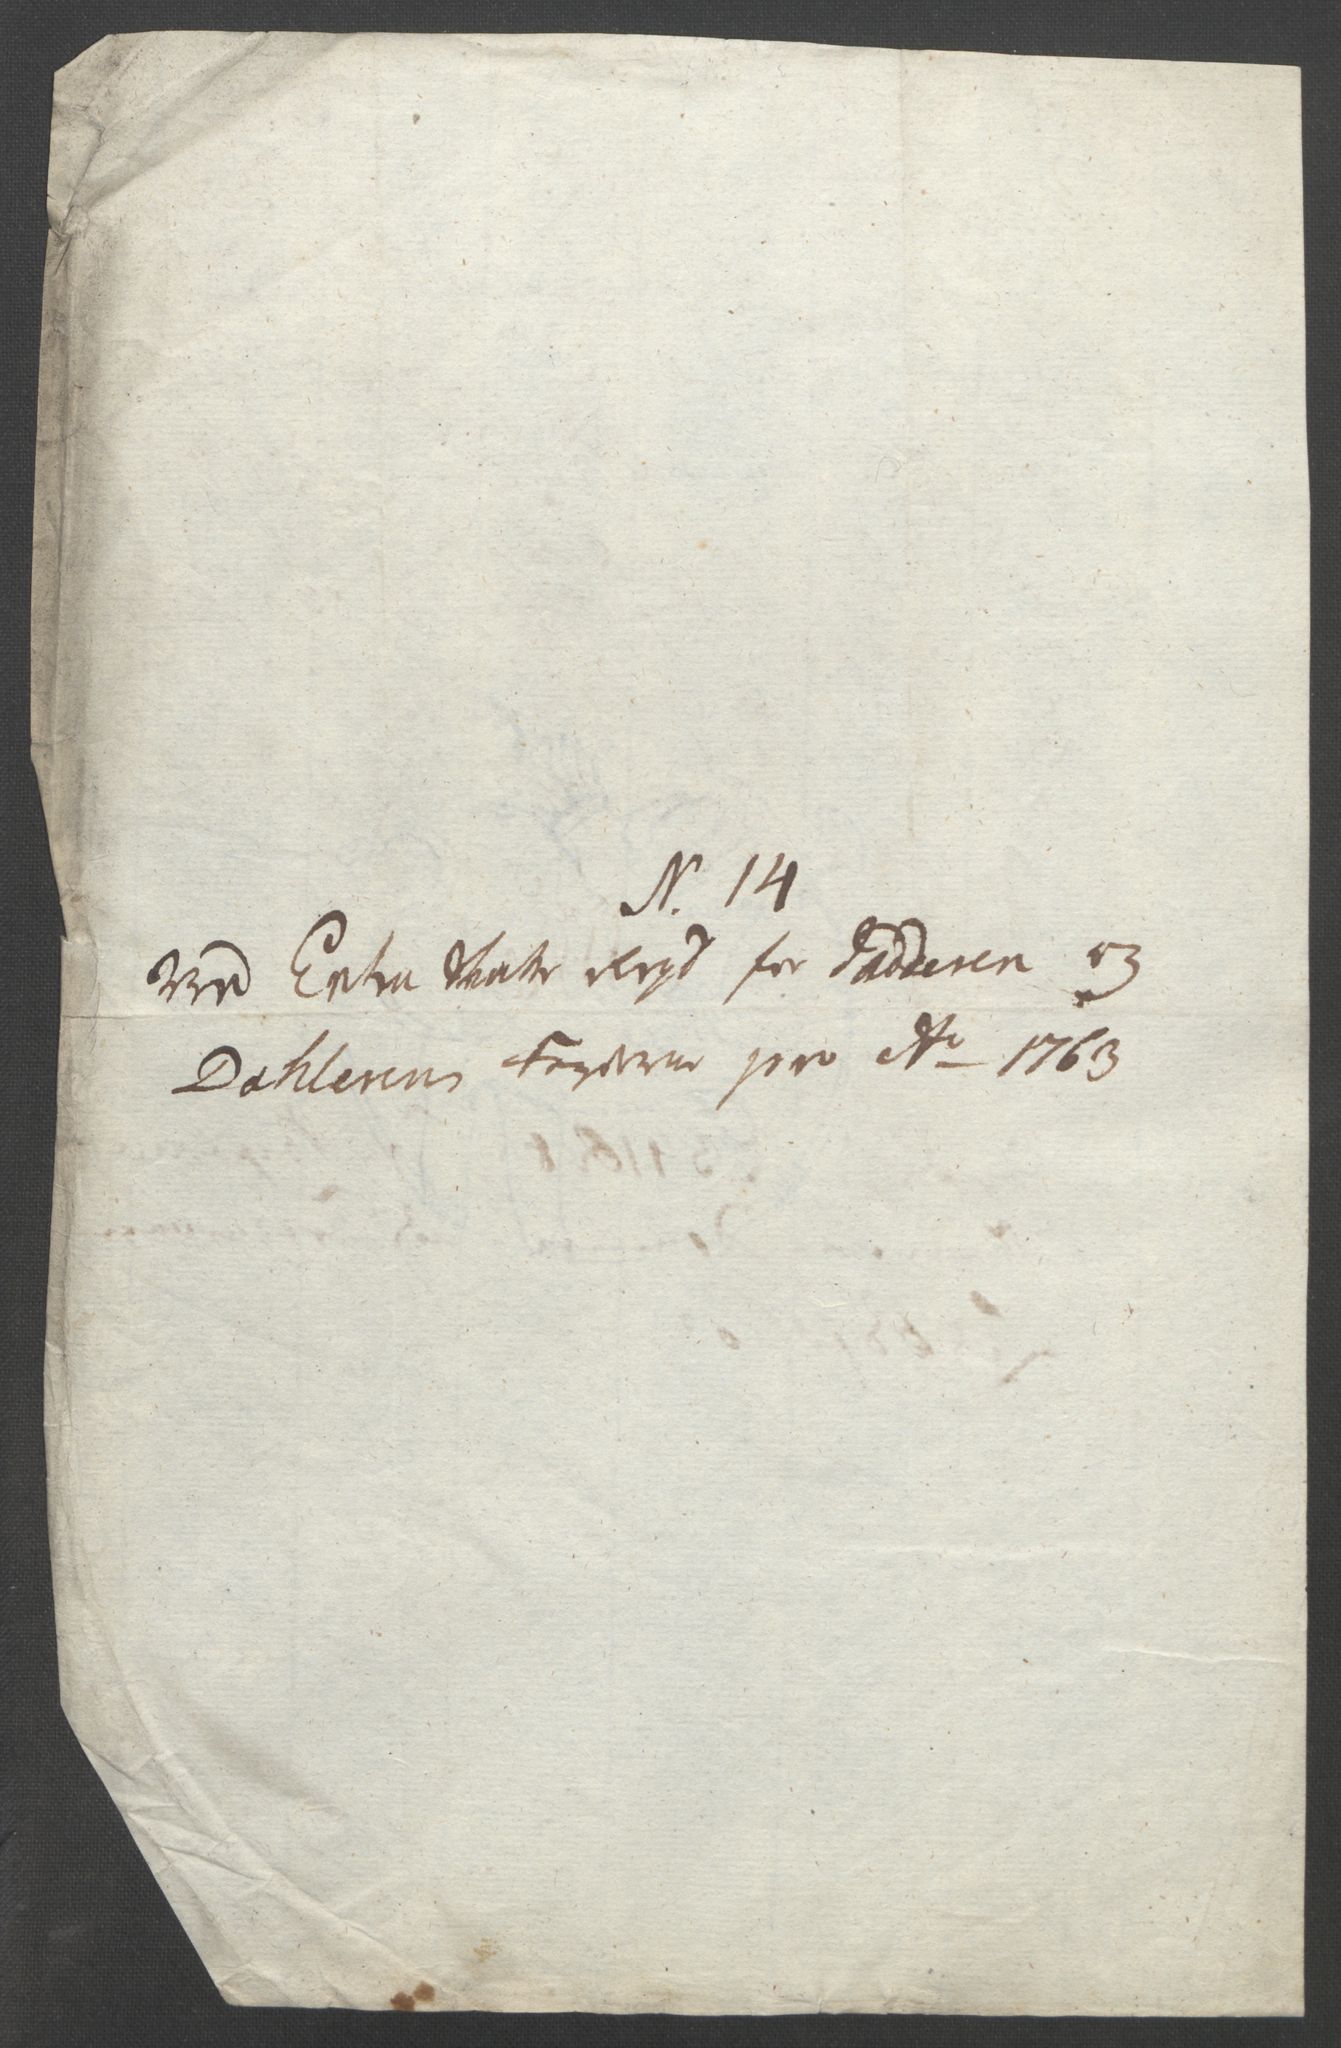 N. 14
Ved Extra Skatte Regs for Jædderen og
Dahlernes Fogderie pro Ao 1763